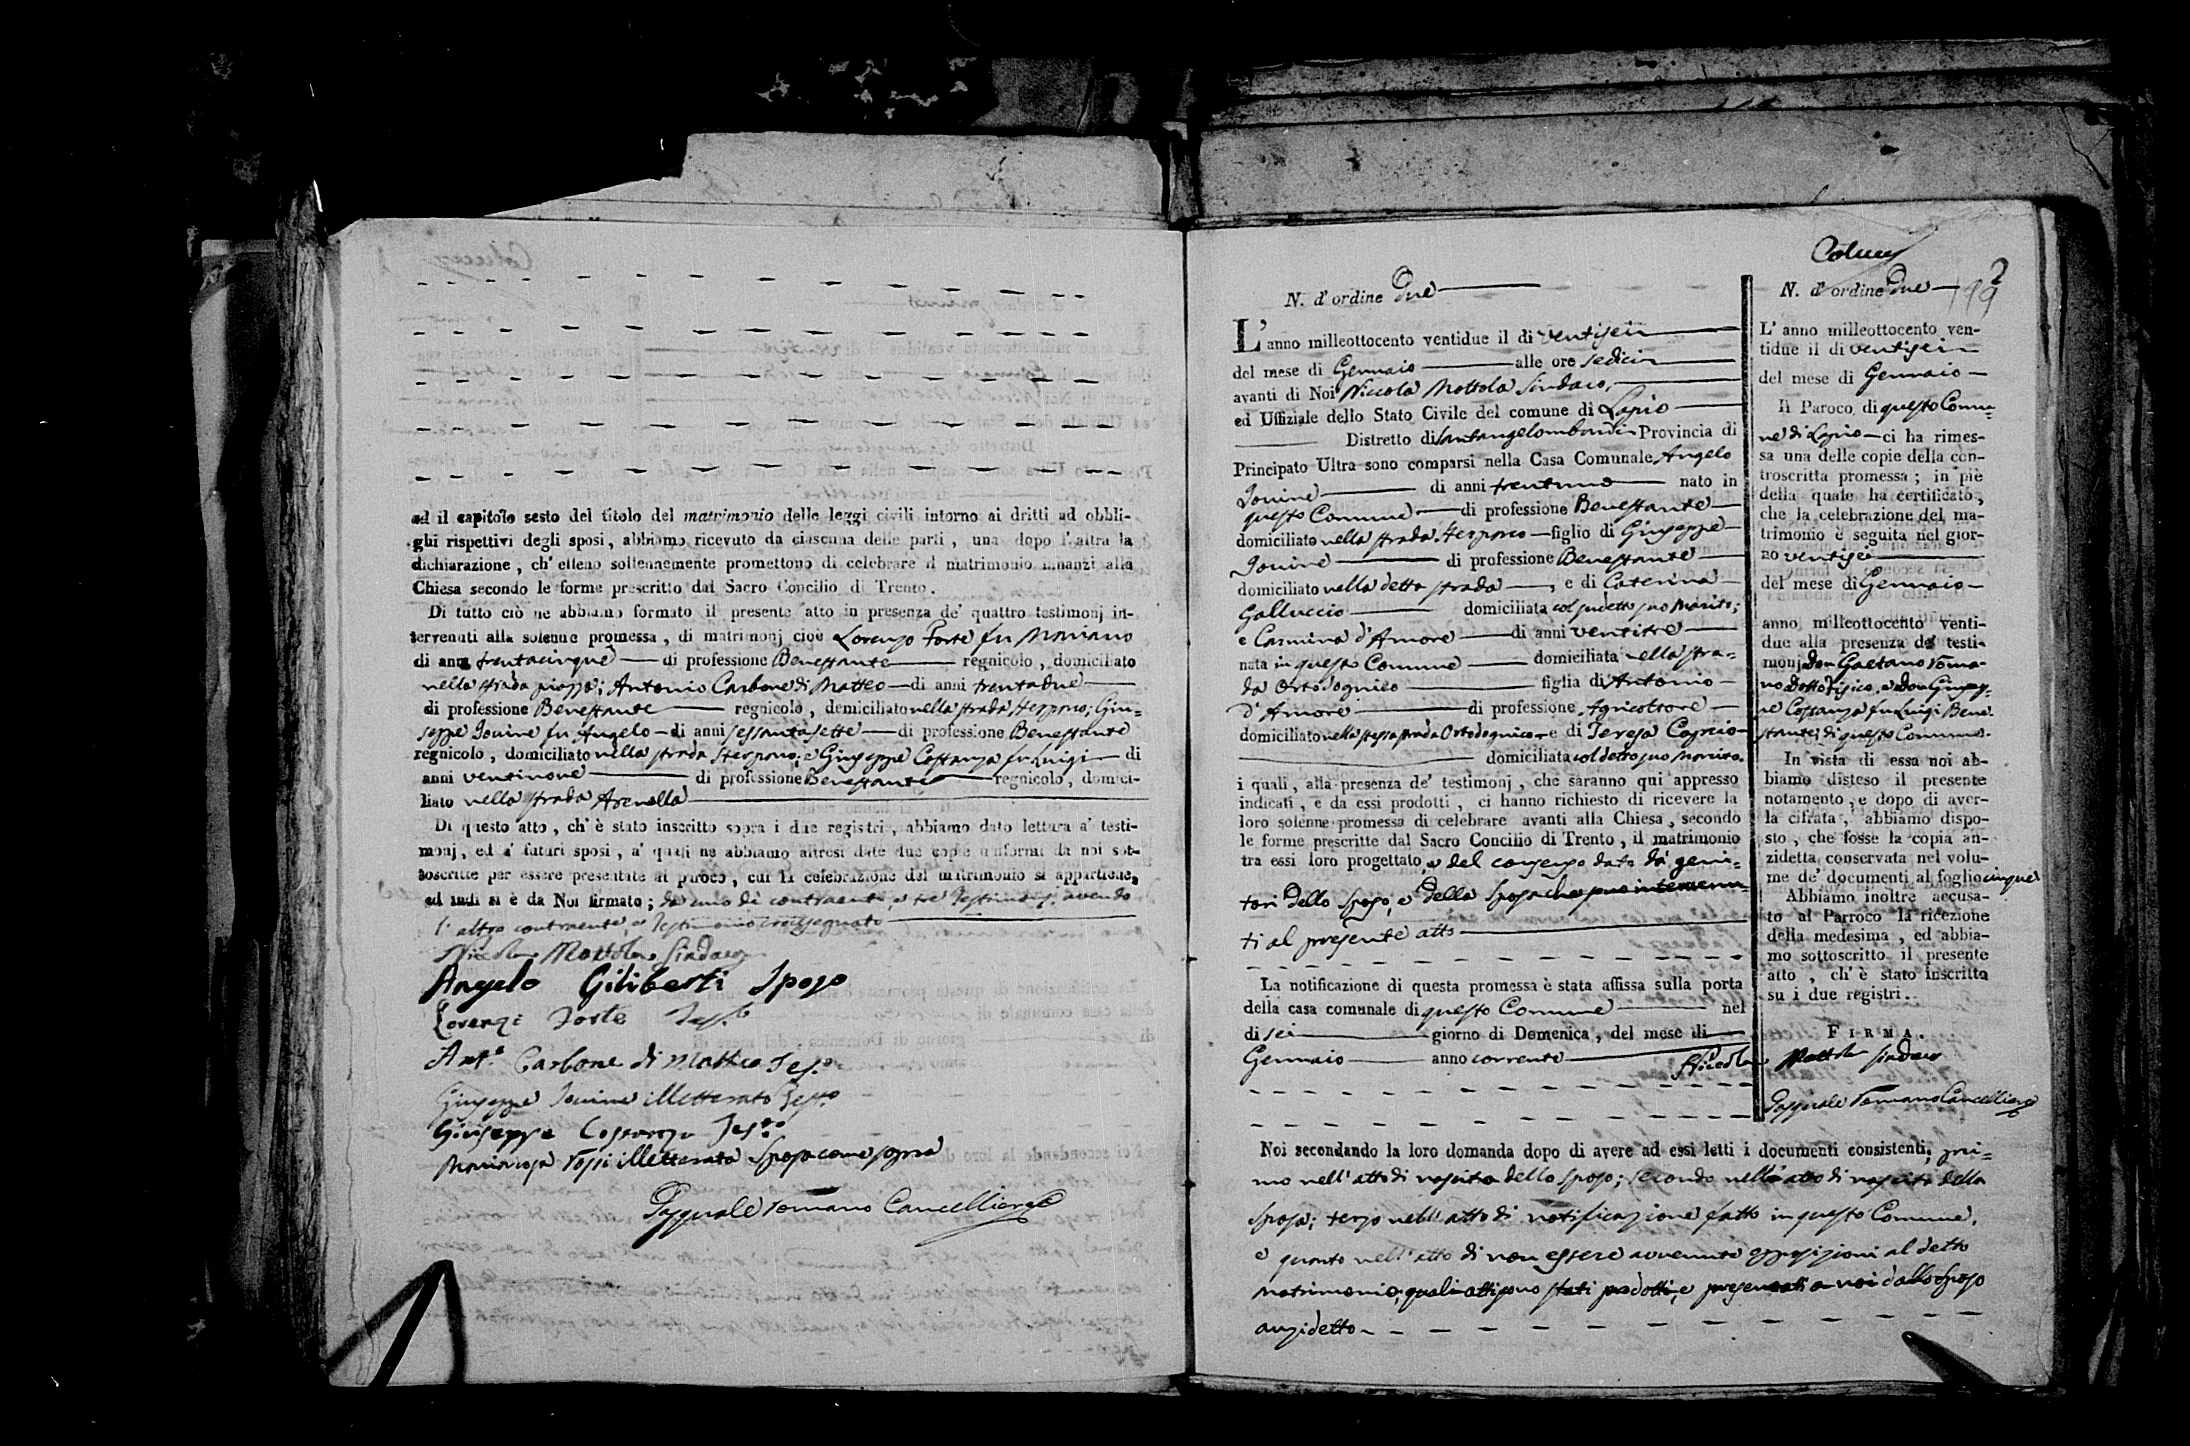 ad il capitolo sesto del titolo del matrimonio delle leggi civili intorno ai dritti ad obbli-
ghi rispettivi degli sposi, abbiamo ricevuto da ciascuna delle parti, una dopo l'altra la
dichiarazione, ch'elleno sollennemente promettono di celebrare il matrimonio innanzi alla
Chiesa secondo le forme prescritto dal Sacro Concilio di Trento.
Di tutto ciò ne abbiamo formato il presente atto in presenza de' quattro testimonj in-
tervenuti alla solenne promessa, di matrimonj cioè Lorenzo Forte fu Mariano
di anni trentacinque di professione Benestante regnicolo, domiciliato
nella strada piazza; Antonio Carbone di Matteo di anni trentadue
di professione Benestante regnicolo, domiciliato nella strada Sterparo; Giu=
seppe Jovine fu Angelo di anni sessantasette di professione Benestante
regnicolo, domiciliato nella strada Sterparo; e Giuseppe Costanza fu Luigi di
anni ventinove di professione Benestante regnicolo, domici-
liato nella strada Arenella
Di questo atto, ch'è stato inscritto sopra i due registri, abbiamo dato lettura a' testi-
monj, ed a' futuri sposi, a' quali ne abbiamo altresì date due copie uniformi da noi sot-
toscritte per essere presentate al paroco, cui la celebrazione del matrimonio si appartiene,
ed indi si è da Noi firmato; da uno di contraenti, e tre Testimonj, avendo
l'altro contraente, e Testimonio crocesegnato
Niccola Mottola Sindaco
Angelo Giliberti Sposo
Lorenzi Forte Test.o
Ant.o Carbone di Matteo Tes.o
Giuseppe Jovine illetterato Test.o
Giuseppe Costanza Tes.o
Mariarosa Rossi illetterata Sposa come sopra
Pasquale Romano Cancelliere
Colucci
2
199
N. d'ordine Due
L'anno milleottocento ventidue il di ventisei
del mese di Gennaio alle ore sedici
avanti di Noi Niccola Mottola Sindaco,
ed Uffiziale dello Stato Civile del comune di Lapio
Distretto di Santangelombardi Provincia di
Principato Ultra sono comparsi nella Casa Comunale Angelo
Jovine di anni trentuno nato in
questo Comune di professione Benestante
domiciliato nella strada Sterparo figlio di Giuseppe
Jovine di professione Benestante
domiciliato nella detta strada, e di Caterina
Galluccio domiciliata col sudetto suo Marito;
e Carmina d'Amore di anni ventitre
nata in questo Comune domiciliata nella stra=
da Ortodognico figlia di Antonio
d'Amore di professione Agricoltore
domiciliato nella stessa strada Ortodognico e di Teresa
domiciliata col detto suo Marito.
i quali, alla presenza de' testimonj, che saranno qui appresso
indicati, e da essi prodotti, ci hanno richiesto di ricevere la
loro solenne promessa di celebrare avanti alla Chiesa, secondo
le forme prescritte dal Sacro Concilio di Trento, il matrimonio
tra essi loro progettato, e del consenso dato da' geni=
tori dello Sposo, e della Sposa che sono intervenu
ti al presente atto
La notificazione di questa promessa è stata affissa sulla porta
della casa comunale di questo Comune nel
di sei giorno di Domenica, del mese di
Gennaio anno corrente
N. d'ordine Due
L'anno milleottocento ven-
tidue il di ventisei
del mese di Gennaio
Il Paroco di questo Comu=
ne di Lapio ci ha rimes-
sa una delle copie della con-
troscritta promessa; in piè
della quale ha certificato,
che la celebrazione del ma-
trimonio è seguita nel gior-
no ventisei
del mese di Gennaio
anno milleottocento venti-
due alla presenza de' testi-
monj don Gaetano Roma=
no Dottofisico, e don Giusep=
pe Costanza fu Luigi Bene=
stanti; di questo Comune.
In vista di essa noi ab-
biamo disteso il presente
notamento, e dopo di aver-
la cifrata, abbiamo dispo-
sto, che fosse la copia an-
zidetta conservata nel volu-
me de' documenti al foglio cinque
Abbiamo inoltre accusa-
to al Parroco la ricezione
della medesima, ed abbia-
mo sottoscritto il presente
atto, ch'è stato inscritto
su i due registri.
FIRMA.
Niccola Mottola Sindaco
Pasquale Romano Cancelliere
Noi secondando la loro domanda dopo di avere ad essi letti i documenti consistenti; pri=
mo nell'atto di nascita dello sposo; secondo nell'atto di nascita della
sposa; terzo nell'atto di notificazione fatto in questo Comune,
e quarto nell'atto di non essere avvenute opposizioni al detto
matrimonio; quali atti sono stati prodotti, e presentati a noi dallo sposo
anzidetto